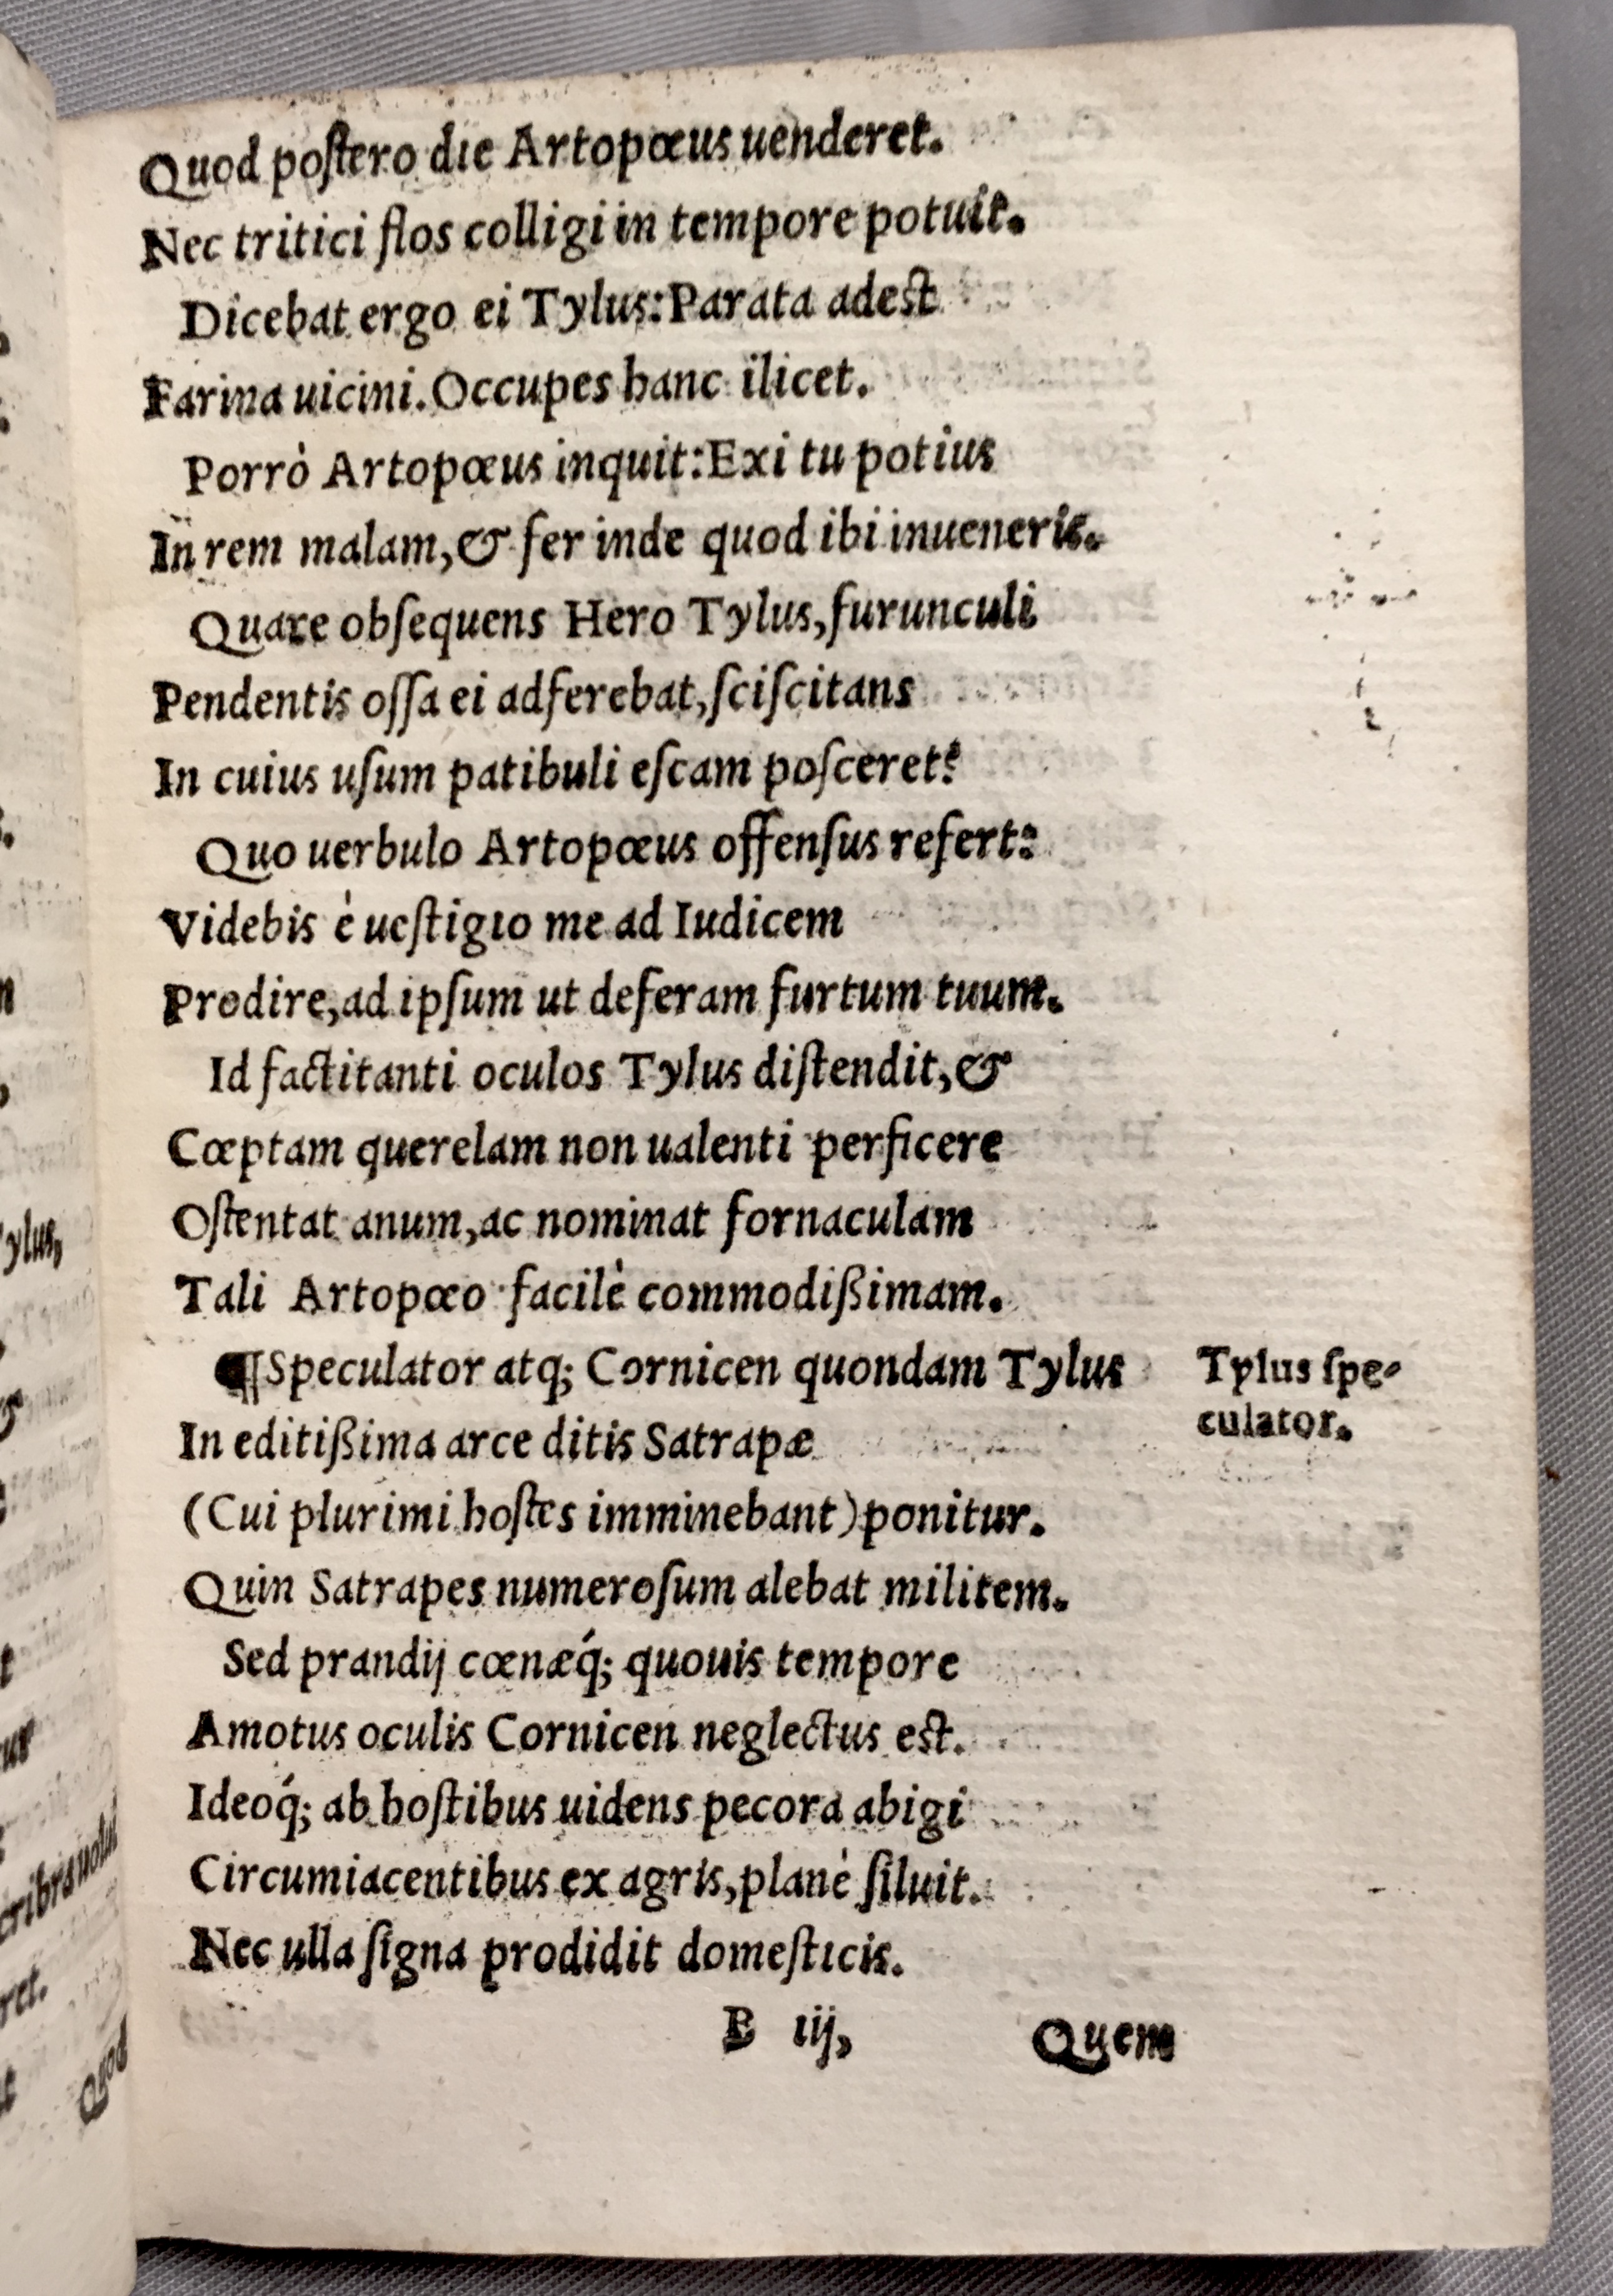 Quod poſtero die Artopœus uenderet.
Nec tritici flos colligi in tempore potuit.
Dicebat ergo ei Tylus: Parata adest
Farina uicini. Occupes hanc ilicet.
Porrò Artopœus inquit: Exi tu potius
In rem malam, & fer inde quod ibi inueneris.
Quare obſequens Hero Tylus, furunculi
Pendentis oſſa ei adferebat, ſciſcitans
In cuius uſum patibuli eſcam poſceret?
Quo uerbulo Artopœus offenſus refert:
Videbis è ueſtigio me ad Iudicem
Prodire, ad ipſum ut deferam furtum tuum.
Id factitanti oculos Tylus diſtendit, &
Cœptam querelam non ualenti perficere
Oſtentat anum, ac nominat fornaculam
Tali Artopœo facilè commodißimam.
¶ Speculator atq; Cornicen quondam Tylus
Tylus ſpe-
culator.
In editißima arce ditis Satrapæ
(Cui plurimi hoſtes imminebant) ponitur.
Quin Satrapes numeroſum alebat militem.
Sed prandij cœnæq́; quouis tempore
Amotus oculis Cornicen neglectus est.
Ideoq́; ab hoſtibus uidens pecora abigi
Circumiacentibus ex agris, planè ſiluit.
Nec ulla ſigna prodidit domeſticis.
B iij,
Quem
ylus,
cribra uolui
ret.
Quod